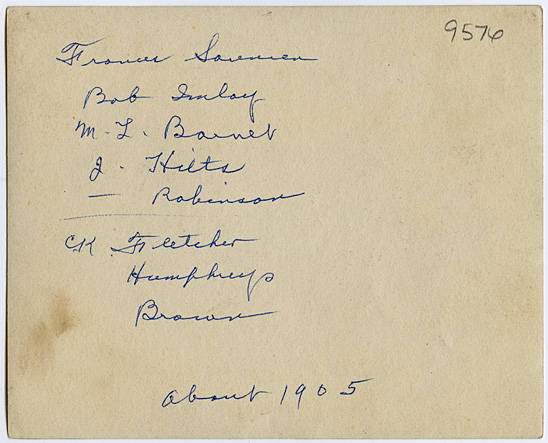 9576
Frances Sorensen
Bob Imlay
M. L. Barnet
J. Hilts
— Robinson
CK Fletcher
Humphreys
Brown
about 1905